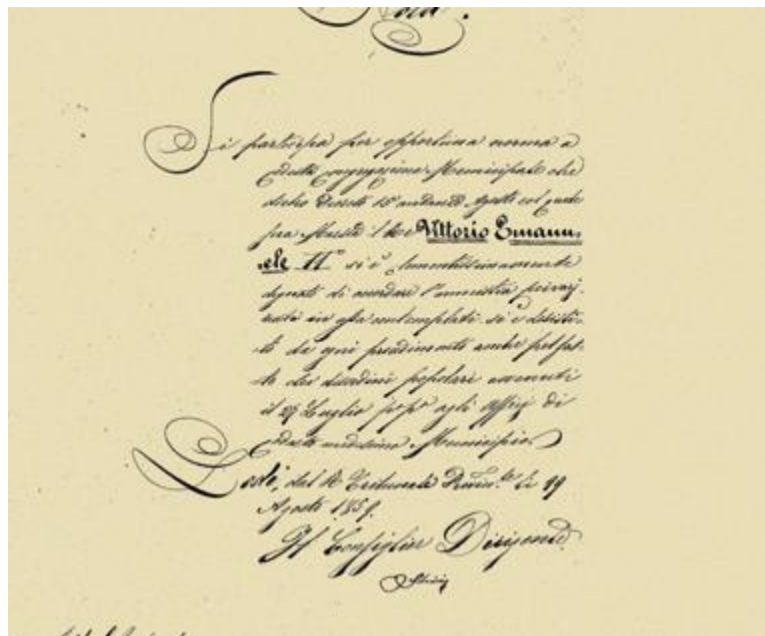 Si partecipa per opportuna norma a
codesta Congregazione Municipale che
dietro Decreto 15 andante Agosto col quale
Sua Maestà il Re Vittorio Emanu,
ele II° si è clementissimamente
degnato di accordare l'amnistia pei
reati in essa contemplati si è desisti-
to da ogni procedimento anche pel fat-
to dei disordini popolari avvenuti
il Luglio p° p° agli Uffizj di
codesto medesimo Municipio.
Lodi, dal R. Tribunale Provin.le li 19
Agosto 1859.
Il Consiglier Dirigente